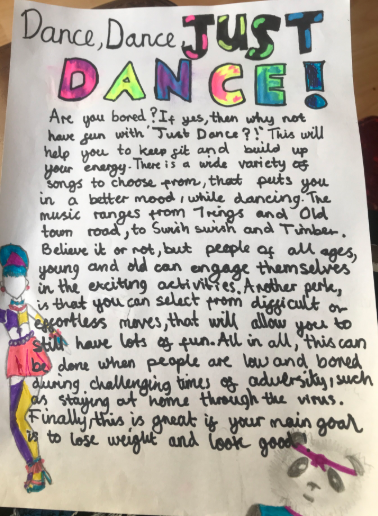 Dance, Dance JUST
DANCE!
Are you bored? If yes, then why not
have fun with "Just Dance?!" This will
help you to keep fit and build up
your energy. There is a wide variety of
songs to choose from, that puts you
in a better mood, while dancing. The
music ranges from 7rings and Old
town road, to Swish swish and Timber.
Believe it or not, but people of all ages,
young and old can engage themselves
in the exciting activities. Another perk,
is that you can select from difficult or
effortless moves, that will allow you to
still have lots of fun. All in all, this can
be done when people are low and bored
during challenging times of adversity, such
as staying at home through the virus.
Finally, this is great if your main goal
is to lose weight and look good